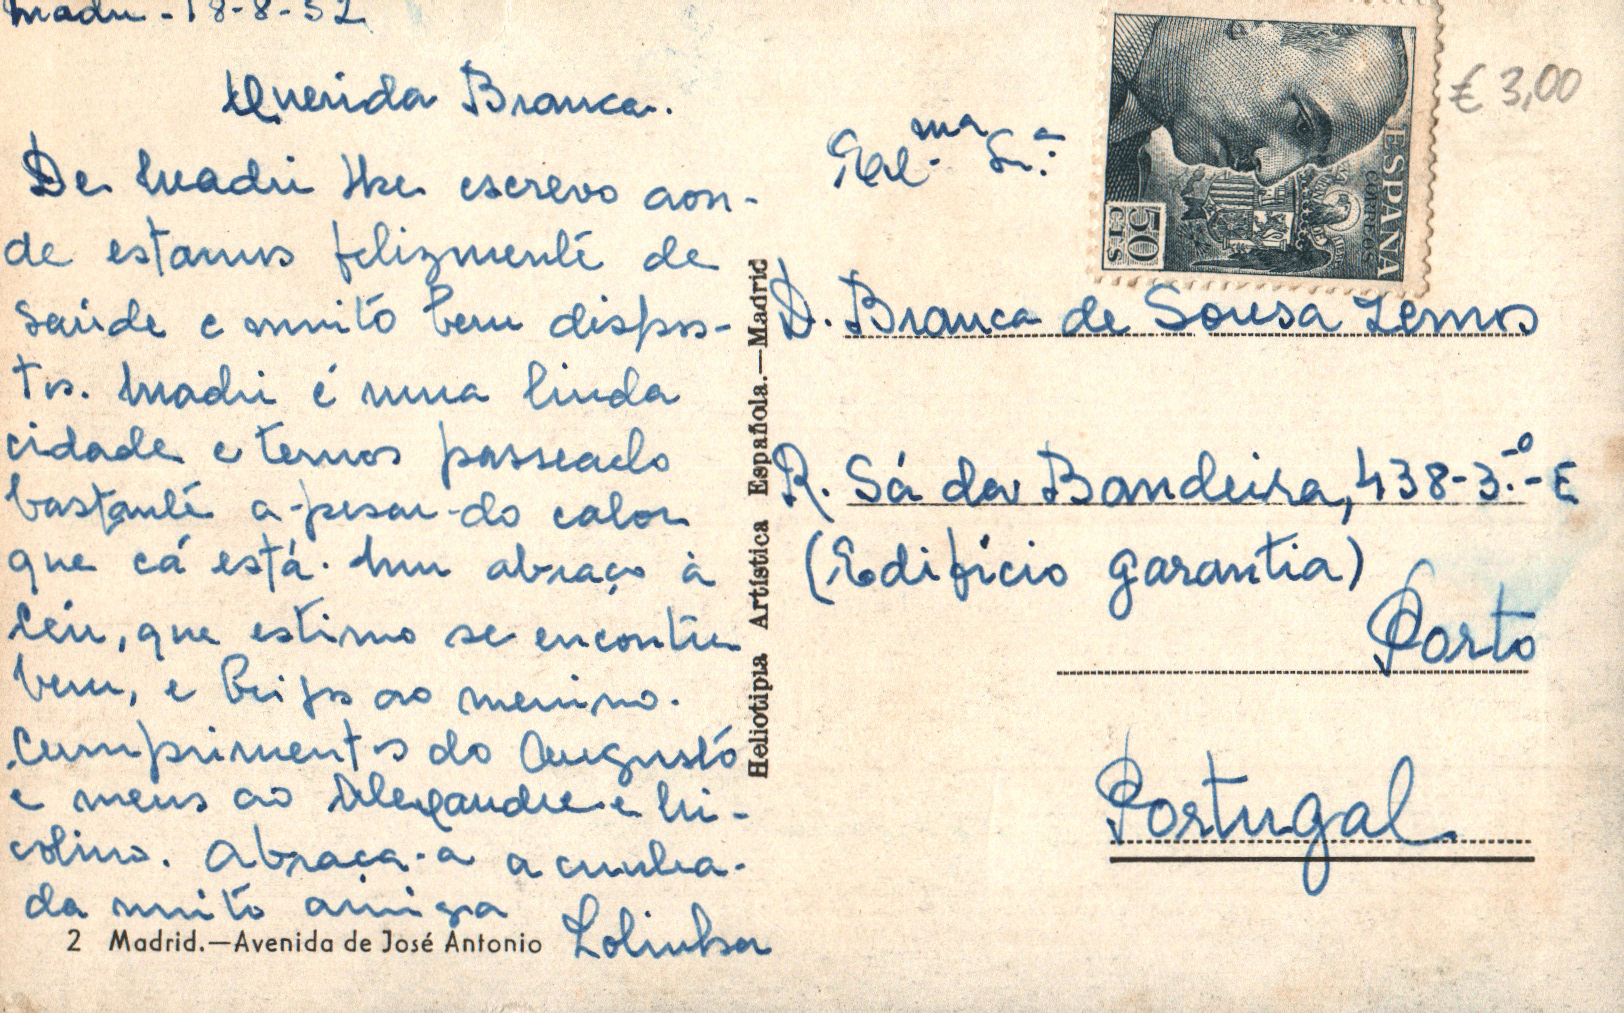 Madri - 18-8-52
Querida Branca.
De Madri lhe escrevo aon-
de estamos felizmente de
saúde e muito bem dispos-
tos. Madri é uma linda
cidade e temos passeado
bastante a-pesar-do calor
que cá está. Um abraço à
Céu, que estimo se encontre
bem, e beijos ao menino.
Cumprimentos do Augusto
e meus ao Alexandre e Ni-
colino. Abraça-a a cunha-
da muito amiga
Lolinha
2 Madrid.—Avenida de José Antonio
Heliotipia Artística Española.—Madrid
€ 3,00
ESPAÑA
CORREOS
50
CTS
Exl.ma Sr.a
D. Branca de Sousa Lemos
R. Sá da Bandeira, 438-3.º-E
(Edifício Garantia)
Porto
Portugal